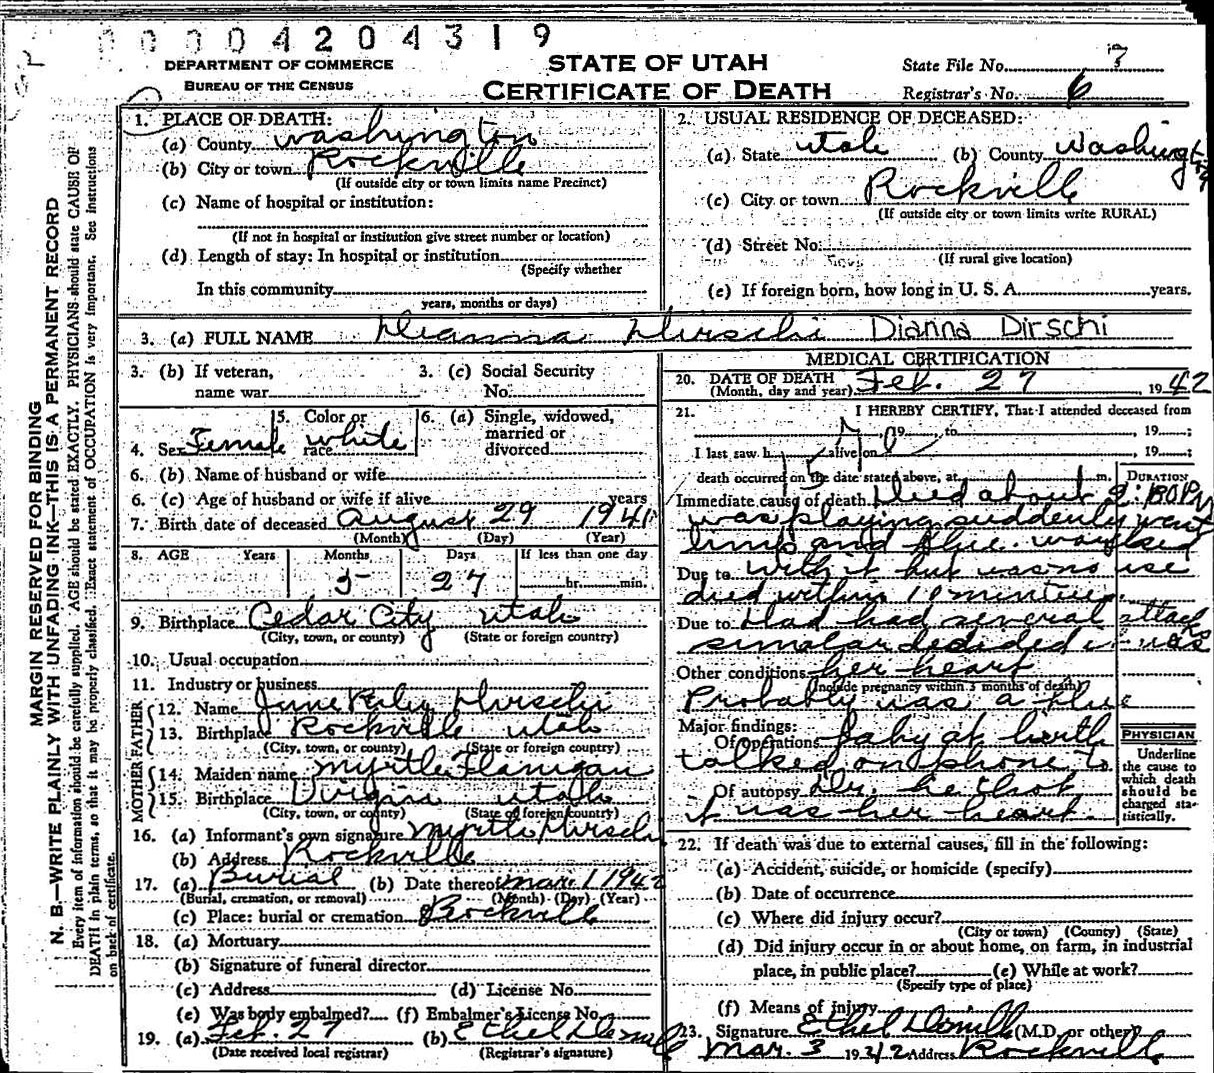 0 0 0 0 4 2 0 4 3 1 9
DEPARTMENT OF COMMERCE
BUREAU OF THE CENSUS
STATE OF UTAH
CERTIFICATE OF DEATH
State File No. 7
Registrar's No. 6
MARGIN RESERVED FOR BINDING
N. B.—WRITE PLAINLY WITH UNFADING INK—THIS IS A PERMANENT RECORD
Every item of information should be carefully supplied. AGE should be stated EXACTLY. PHYSICIANS should state CAUSE OF
DEATH in plain terms, so that it may be properly classified. Exact statement of OCCUPATION is very important. See Instructions
on back of certificate.
1. PLACE OF DEATH:
(a) County Washington
(b) City or town Rockville
(If outside city or town limits name Precinct)
(c) Name of hospital or institution:
(If not in hospital or institution give street number or location)
(d) Length of stay: In hospital or institution
(Specify whether
In this community
years, months or days)
2. USUAL RESIDENCE OF DECEASED:
(a) State Utah (b) County Washington
(c) City or town Rockville
(If outside city or town limits write RURAL)
(d) Street No:
(If rural give location)
(e) If foreign born, how long in U. S. A. years.
3. (a) FULL NAME Dianna Hirschi Dianna Dirschi
3. (b) If veteran, name war
3. (c) Social Security No.
4. Sex Female
5. Color or race white
6. (a) Single, widowed, married or divorced
6. (b) Name of husband or wife
6. (c) Age of husband or wife if alive years
7. Birth date of deceased August 29 1941
(Month) (Day) (Year)
8. AGE Years Months Days If less than one day
5 27 hr. min.
9. Birthplace Cedar City Utah
(City, town, or county) (State or foreign country)
10. Usual occupation
11. Industry or business
FATHER
12. Name June Hirschi
13. Birthplace Rockville Utah
(City, town, or county) (State or foreign country)
MOTHER
14. Maiden name Myrtle Flanigan
15. Birthplace Virgin Utah
(City, town, or county) (State or foreign country)
16. (a) Informant's own signature Myrtle Hirschi
(b) Address Rockville
17. (a) Burial (b) Date thereof Mar. 1 1942
(Burial, cremation, or removal) (Month) (Day) (Year)
(c) Place: burial or cremation Rockville
18. (a) Mortuary
(b) Signature of funeral director
(c) Address (d) License No.
(e) Was body embalmed? (f) Embalmer's License No.
19. (a) Feb. 27 (b) Ethel Demill
(Date received local registrar) (Registrar's signature)
MEDICAL CERTIFICATION
20. DATE OF DEATH Feb. 27 1942
(Month, day and year)
21. I HEREBY CERTIFY, That I attended deceased from
No to , 19 ;
I last saw h alive on , 19 ;
death occurred on the date stated above, at m.
DURATION
Immediate cause of death Died about 2:30 PM
was playing suddenly went
limp and blue. worked
Due to with it but was no use
died within 10 mintues.
Due to Had had several attacks
simalar decided it was
Other conditions her heart
(Include pregnancy within 3 months of death)
Probably was a blue
Major findings:
Of operations baby at birth
talked on phone to
Of autopsy Dr. he thot
it was her heart.
PHYSICIAN
Underline
the cause to
which death
should be
charged sta-
tistically.
22. If death was due to external causes, fill in the following:
(a) Accident, suicide, or homicide (specify)
(b) Date of occurrence
(c) Where did injury occur?
(City or town) (County) (State)
(d) Did injury occur in or about home, on farm, in industrial
place, in public place? (e) While at work?
(Specify type of place)
(f) Means of injury
23. Signature Ethel Demill (M.D. or other)
Mar. 3 1942 Address Rockville